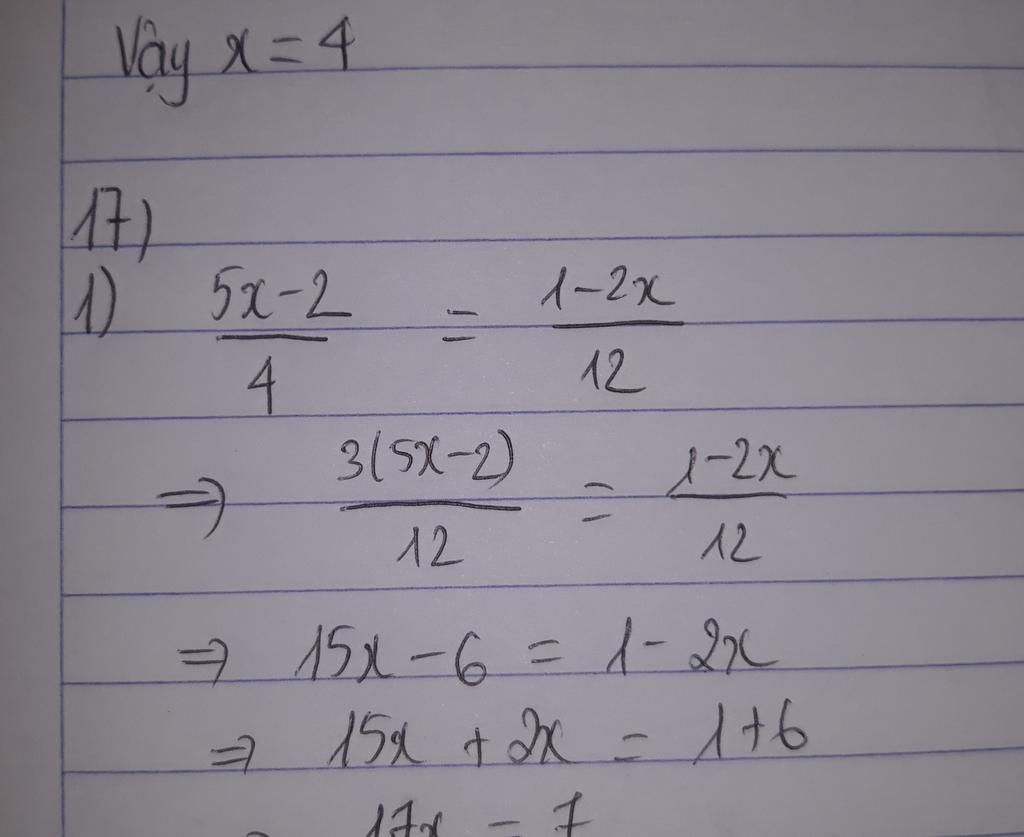 Vậy x = 4
17)
1) 5x-2/4 = 1-2x/12
=> 3(5x-2)/12 = 1-2x/12
=> 15x - 6 = 1 - 2x
=> 15x + 2x = 1+6
17x = 7